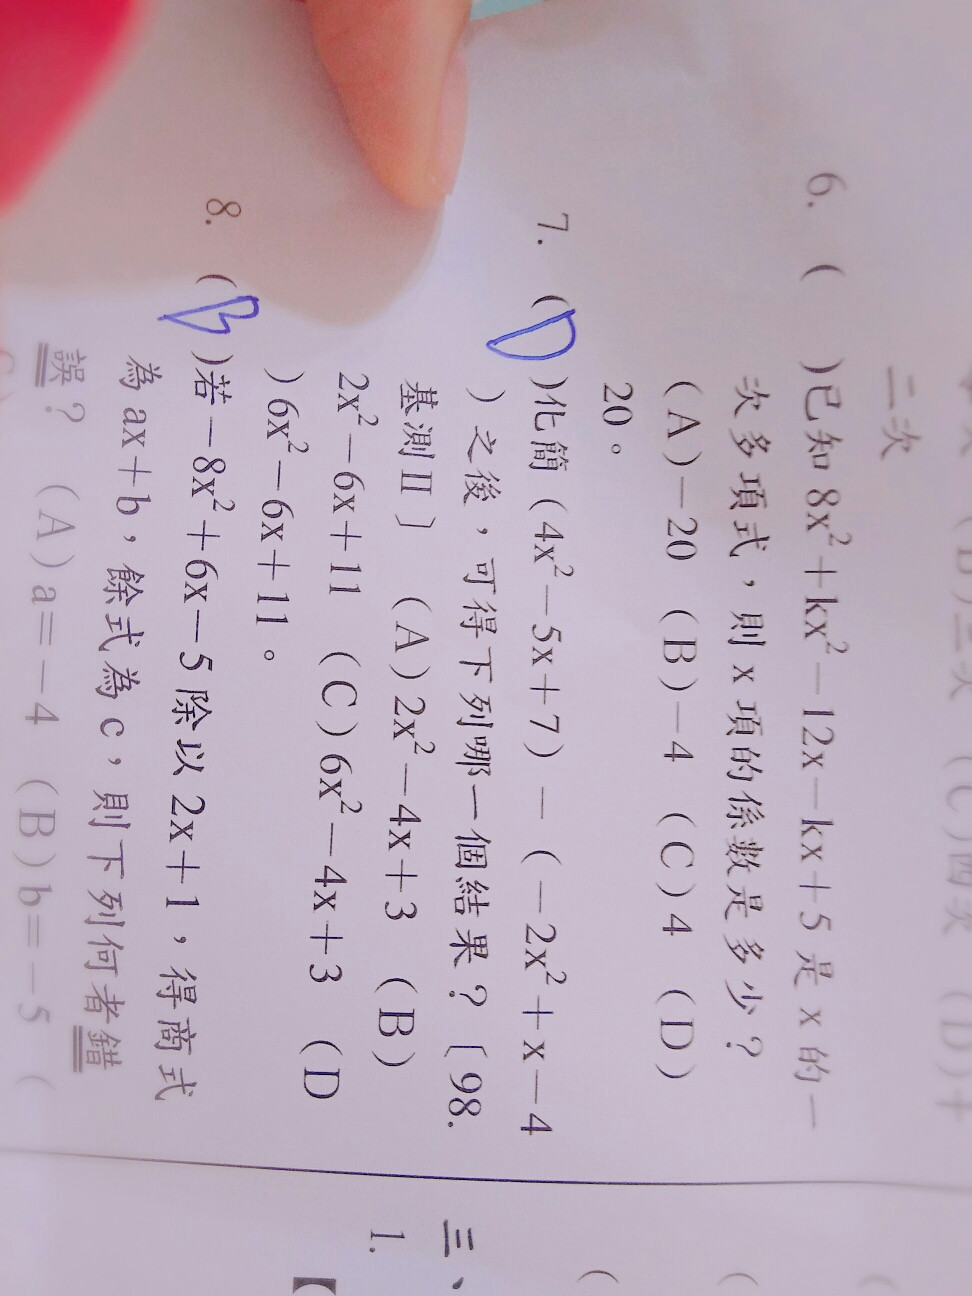 二次
6. ( )已知 8x²+kx²-12x-kx+5 是 x 的一
次多項式，則 x 項的係數是多少？
(A)-20 (B)-4 (C)4 (D)
20。
7. (D)化簡(4x²-5x+7)-(-2x²+x-4
)之後，可得下列哪一個結果？〔98.
基測Ⅱ〕 (A)2x²-4x+3 (B)
2x²-6x+11 (C)6x²-4x+3 (D
)6x²-6x+11。
8. (B)若-8x²+6x-5 除以 2x+1，得商式
為 ax+b，餘式為 c，則下列何者錯
誤？ (A)a=-4 (B)b=-5 (
三、
1.
【
(
(
(